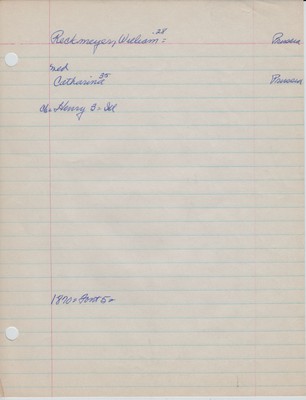 Reckmeyer, William = 28 Prussia
med
Catharina 35 Prussia
ch = Henry 3 = Ill
1870 =